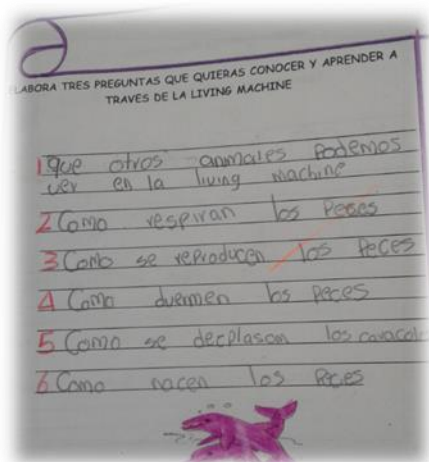 LABORA TRES PREGUNTAS QUE QUIERAS CONOCER Y APRENDER A
TRAVES DE LA LIVING MACHINE
1 que otros anmales Podemos
ver en la living machine
2 Como respiran los Peces
3 Como se reproducen los Peces
4 Como duermen los peces
5 Como se decplasan los caracol
6 Como nacen los Peces